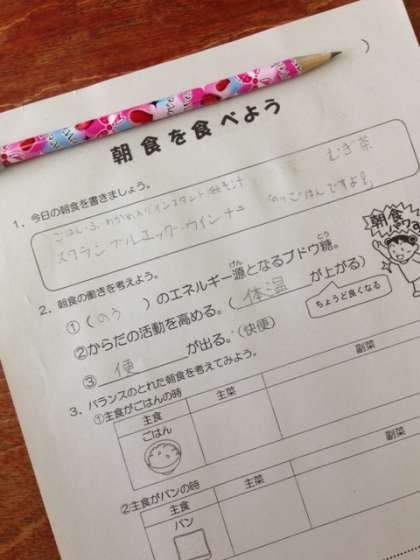 朝食を食べよう
1．今日の朝食を書きましょう。
むぎ茶
ごはん・ふ、わかめ入りインスタントみそ汁
スクランブルエッグ・ウインナー のりごはんですよ!
2．朝食の働きを考えよう。
朝食
①(のう )のエネルギー源となるブドウ糖。
げん
とう
②からだの活動を高める。(体温 が上がる)
ちょうど良くなる
③ 便 が出る。(快便)
3．バランスのとれた朝食を考えてみよう。
①主食がごはんの時
主食 主菜 副菜
ごはん
②主食がパンの時
主食 主菜 副菜
パン